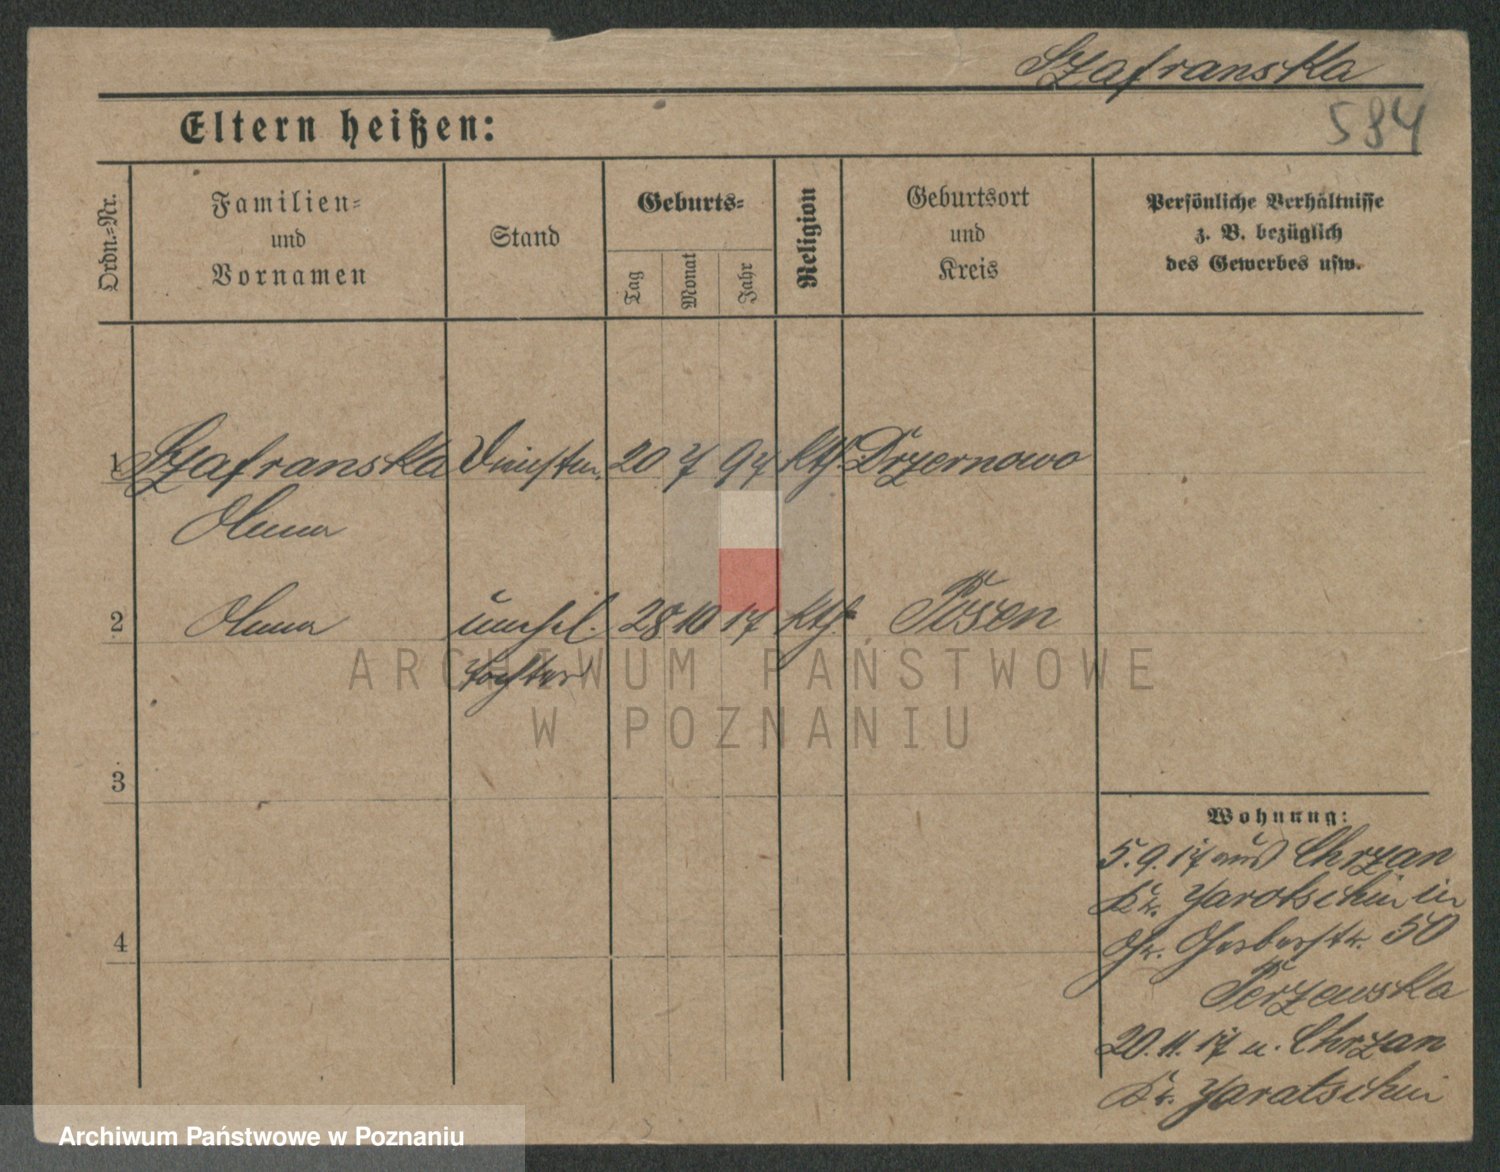 Szafranska
584
Eltern heißen:
Ordn.-Nr.
Familien-
und
Vornamen
Stand
Geburts-
Tag
Monat
Jahr
Religion
Geburtsort
und
Kreis
Persönliche Verhältnisse
z. B. bezüglich
des Gewerbes usw.
1 Szafranska 20 7 97 kth. Drzernowo
Anna
2 Anna unehel. 28 10 17 kth. Posen
Tochter
ARCHIWUM PAŃSTWOWE
W POZNANIU
3
4
Wohnung:
5.9.17 aus Chrzan
Kr. Jarotschin in
Gr. Gerberstr. 50
Perzewska
20.11.17 n. Chrzan
Kr. Jaratschin
Archiwum Państwowe w Poznaniu